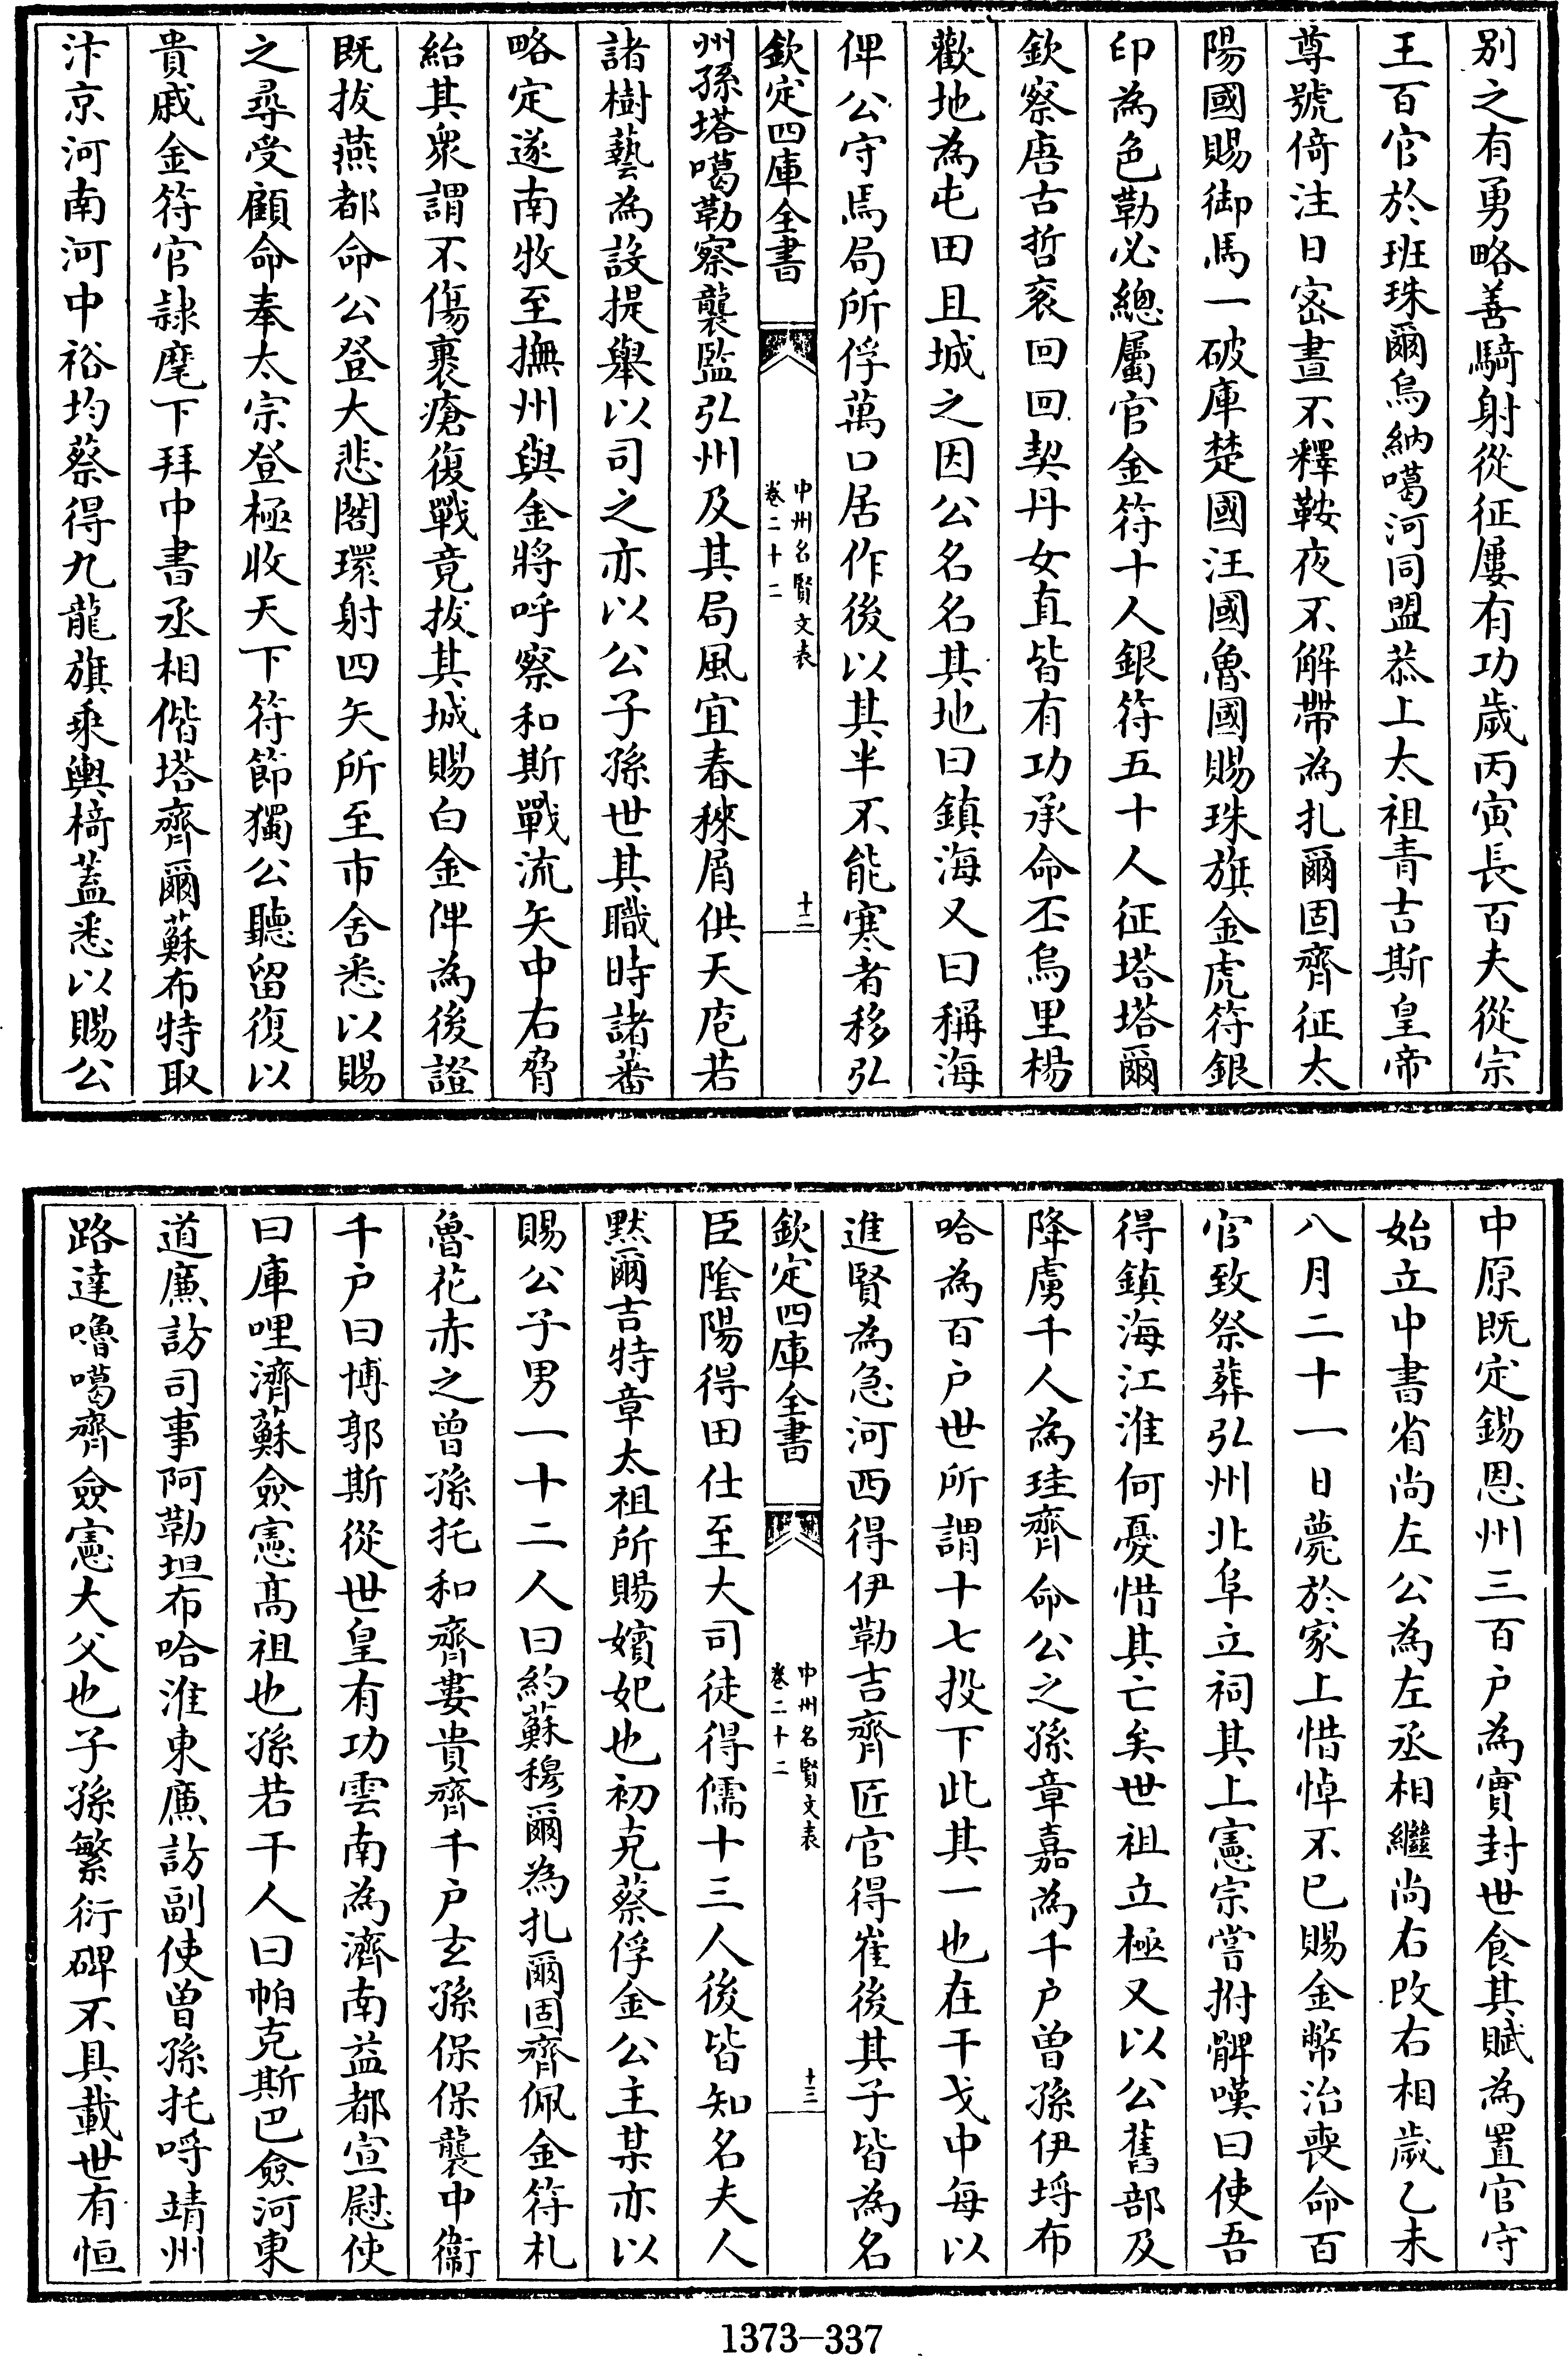 别之有勇略善騎射從征屢有功歲丙寅長百夫從宗
王百官於班珠爾烏納噶河同盟恭上太祖青吉斯皇帝
尊號倚注日宻晝不釋鞍夜不解帶為扎爾固齊征太
陽國賜御馬一破庫楚國汪國魯國賜珠旗金虎符銀
印為色勒必總屬官金符十人銀符五十人征塔塔爾
欽察唐古哲衮回回契丹女直皆有功承命丕烏里楊
歡地為屯田且城之因公名名其地曰鎮海又曰稱海
俾公守焉局所俘萬口居作後以其半不能寒者移弘
欽定四庫全書
中州名賢文表
卷二十二
十二
州孫塔噶勒察襲監弘州及其局風宜春稑屑供天庖若
諸樹藝為設提舉以司之亦以公子孫世其職時諸蕃
略定遂南牧至撫州與金將呼察和斯戰流矢中右脅
紿其衆謂不傷裹瘡復戰竟拔其城賜白金俾為後證
既拔燕都命公登大悲閣環射四矢所至市舍悉以賜
之尋受顧命奉太宗登極收天下符節獨公聽留復以
貴戚金符官隷麾下拜中書丞相偕塔齊爾蘇布特取
汴京河南河中裕均蔡得九龍旗乘輿椅葢悉以賜公
中原既定錫恩州三百户為實封世食其賦為置官守
始立中書省尚左公為左丞相繼尚右改右相歲乙未
八月二十一日薨於家上惜悼不已賜金幣治喪命百
官致祭葬弘州北阜立祠其上憲宗嘗拊髀嘆曰使吾
得鎮海江淮何憂惜其亡矣世祖立極又以公舊部及
降虜千人為珪齊命公之孫章嘉為千户曽孫伊埒布
哈為百户世所謂十七投下此其一也在干戈中每以
進賢為急河西得伊勒吉齊匠官得崔後其子皆為名
欽定四庫全書
中州名賢文表
卷二十二
十三
臣陰陽得田仕至大司徒得儒十三人後皆知名夫人
黙爾吉特章太祖所賜嬪妃也初克蔡俘金公主某亦以
賜公子男一十二人曰約蘇穆爾為扎爾固齊佩金符札
魯花赤之曽孫托和齊婁貴齊千户玄孫保保襲中衞
千户曰博郭斯從世皇有功雲南為濟南益都宣慰使
曰庫哩濟蘇僉憲髙祖也孫若干人曰帕克斯巴僉河東
道廉訪司事阿勒坦布哈淮東廉訪副使曽孫托哷靖州
路達嚕噶齊僉憲大父也子孫繁衍碑不具載世有恒
1373—337